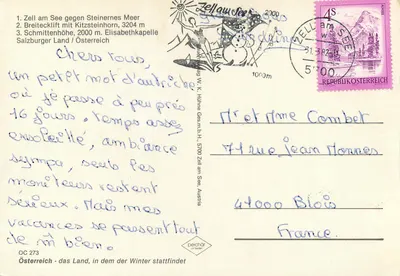 1. Zell am See gegen Steinernes Meer
2. Breiteckflft mit Kitzsteinhorn, 3204 m
3. Schmittenhöhe, 2000 m. Elisabethkapelle
Salzburger Land / Österreich
Chers tous,
un petit mot d'autriche
où je passe à peu près
16 jours. Temps assez
ensoleillé, ambiance
sympa, seuls les
moniteurs restent
sérieux. Mais mes
vacances se passent tout
de m̂ bien.
OC 273
Österreich - das Land, in dem der Winter stattfindet
Verlag W. K. Hühne Ges.m.b.H., 5700 Zell am See, Austria
Zell am See
2000
1000m
ZELL AM SEE
5700
4S
REPUBLIK ÖSTERREICH
Mr et Mme Combet
71 rue Jean Monnes
41000 Blois
France.